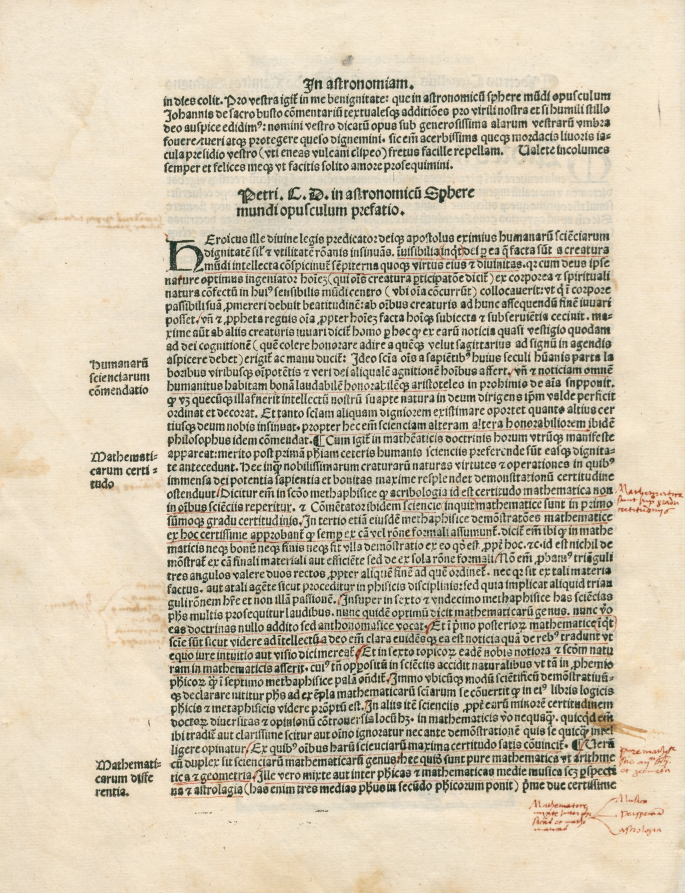 In astronomiam.
in dies colit. Pro vestra igit̃ in me benignitate: que in astronomicũ sphere mũdi opusculum
Johannis de sacro busto cõmentariũ textualesqȝ additiões pro virili nostra et si humili stillo
deo auspice edidimꝰ: nomini vestro dicatũ opus sub generosissima alarum vestrarũ vmbra
fouere/tueri atqȝ protegere queso dignemini. sic em̃ acerbissima queqȝ mordacis liuoris ia-
cula presidio vestro (vti eneas vulcani clipeo) fretus facile repellam. Ualete incolumes
semper et felices meqȝ vt facitis solito amore prosequimini.
Petri. C. D. in astronomicũ Sphere
mundi opusculum prefatio.
HEroicus ille diuine legis predicator deiqȝ apostolus eximius humanarũ sciẽciarum
dignitatẽ sil̃ ⁊ vtilitatẽ rõanis insinuãs. inuisibilia inq̃t dei ꝑ ea q̃ facta sũt a creatura
mũdi intellecta cõspiciunt̃ sẽpiterna quoqȝ virtus eius ⁊ diuinitas. qr̃ cum deus ipse
nature optimus ingeniator hoiẽȝ (qui oĩs creatura ꝑticipatõe dicit̃) ex corporea ⁊ spirituali
natura cõfectũ in huiꝰ sensibilis mũdi centro (vbi oĩa cõcurrũt) collocauerit: vt q̃ i corpore
passibili sua ꝓmereri debuit beatitudinẽ: ab oĩbus creaturis ad hunc assequendũ finẽ iuuari
posset. vñ ⁊ ꝓpheta reguis oĩa ꝓpter hoiẽȝ facta hoiqȝ subiecta ⁊ subseruiẽtia cecinit. ma-
xime aũt ab aliis creaturis iuuari dicit̃ homo ꝑ hoc qȝ ex earũ noticia quasi vestigio quodam
ad dei cognitionẽ (quẽ colere honorare adire a quẽqȝ velut sagittarius ad signũ in agendis
aspicere debet) erigit̃ ac manu ducit̃: Ideo sciã oĩs a sapiẽtibꝰ huius seculi hũanis parta la
boribus viribusqȝ oĩpotẽtis ⁊ veri dei aliqualẽ agnitionẽ hoibus affert. vñ ⁊ noticiam omnẽ
humanitus habitam bonã laudabilẽ honorabilẽqȝ aristoteles in prohimio de aĩa supponit.
ordinat et decorat. Et tanto sciam aliquam digniorem existimare oportet quanto altius cer
tiusqȝ deum nobis insinuat. propter hec em̃ scienciam alteram altera honorabiliorem ibidẽ
philosophus idem cõmẽdat. ¶ Cum igit̃ in mathẽaticis doctrinis horum vtrũqȝ manifeste
appareat: merito post primã phĩam ceteris humanis scienciis preferende sũt easqȝ dignita-
te antecedunt. Hec inqȝ nobilissimarum craturarũ naturas virtutes ⁊ operationes in quibꝰ
immensa dei potentia sapientia et bonitas maxime resplendet demonstrationũ certitudine
ostendunt/ Dicitur em̃ in scd̃o metaphisice qȝ acribologia id est certitudo mathematica non
in oĩbus sciẽciis reperitur. ⁊ Cõmẽtator ibidem sciencie inquit mathematice sunt in primo
sũmoqȝ gradu certitudinis. In tertio etiã eiusdẽ metaphisice demonstratões mathematice
ex hoc certissime approbant̃ qȝ semper ex cã vel rõne formali assumunt̃. dicit̃ em̃ ibi qȝ in mathe
maticis neqȝ bonũ neqȝ finis neqȝ fit vlla demõstratio ex eo qȝ est. ꝓpt̃ hoc. ⁊c. id est nichil de
mõstrat̃ ex cã finali materiali aut efficiẽte sed de ex sola rõne formali. Nõ em̃ ꝓbamꝰ triãguli
tres angulos valere duos rectos ꝓpter aliquẽ finẽ ad quẽ ordinet̃. nec qr̃ sit ex tali materia
factus. aut a tali agẽte sicut proceditur in phisicis disciplinis: sed quia implicat aliquid trian
guli rõnem hr̃e et non illã passionẽ. Insuper in sexto ⁊ vndecimo methaphisice has sciẽcias
phs multis prosequitur laudibus. nunc quidẽ optimũ dicit mathematicarũ genus. nunc vo
eas doctrinas nullo addito sed anthonomasice vocat. Et ĩ primo posterioꝝ mathematice inq̃t
scie sũt sicut videre ad intellectũ: a deo em̃ clara euidẽsqȝ ea est noticia quã de rebꝰ tradunt vt
equo iure intuitio aut visio dicimereat̃. Et in sexto topicoꝝ eadẽ nobis notiora ⁊ scd̃m natu
ram in mathematicis asserit. cuiꝰ tñ oppositũ in sciẽciis accidit naturalibus vt tñ in ꝓhemio
phicoꝝ ⁊ ĩ septimo methaphisice palã oñdit̃. Immo vbicũqȝ modũ scientificũ demonstratiuũ-
qȝ declarare nititur phs ad exẽpla mathematicarũ sciarum se cõuertit ⁊ in eiꝰ libris logicis
phicis ⁊ metaphisicis videre prõptũ est. In aliis itẽ scienciis ꝓpter earũ minorẽ certitudinem
doctoꝝ diuersitas ⁊ opinionũ cõtrouersia locũ hȝ. in mathematicis vo nequaqȝ. quicqd̃ em̃
ibi tradit̃ aut clarissime scitur aut oĩno ignoratur nec ante demonstrationẽ quis se quicqȝ intel
ligere opinatur. Ex quibꝰ oĩbus harũ scienciarũ maxima certitudo satis cõuincit̃. ¶ Uerũ
cũ duplex sit scienciarũ mathematicarũ genus: hee quis sunt pure mathematice vt arithme
tica ⁊ geometria. Ille vero mixte aut inter phicas ⁊ mathematicas medie musica scȝ ꝑspecti
ua ⁊ astrologia (has enim tres medias phus in secũdo phicorum ponit) prime due certissime
Humanarũ
scienciarum
cõmendatio
Mathemati-
carum certi-
tudo
Mathemati-
carum diffe
rentia.
Musica
perspectiua
astrologia